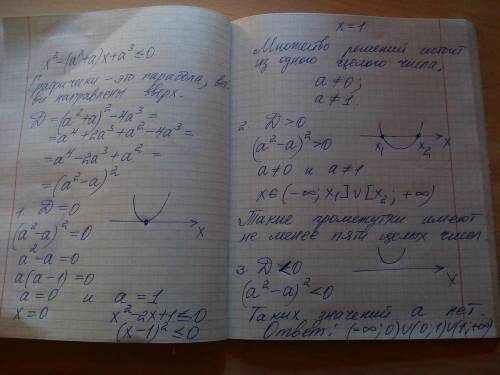 x² - (a²+a)x + a³ ≤ 0
Графически - это парабола, вет-
ви направлены вверх.
D = (a²+a)² - 4a³ =
= a⁴ + 2a³ + a² - 4a³ =
= a⁴ - 2a³ + a² =
= (a² - a)²
1. D = 0
(a² - a)² = 0
a² - a = 0
a(a-1) = 0
a = 0 и a = 1
x = 0 x² - 2x + 1 ≤ 0
(x-1)² ≤ 0
x
x = 1
Множество решений состоит
из одного целого числа,
a ≠ 0;
a ≠ 1.
2. D > 0
(a² - a)² > 0
a ≠ 0 и a ≠ 1
x₁ x₂ x
x ∈ (-∞; x₁] ∪ [x₂; +∞)
Такие промежутки имеют
не менее пяти целых чисел
3. D < 0
(a² - a)² < 0
x
Таких значений a нет.
Ответ: (-∞; 0) ∪ (0; 1) ∪ (1; +∞)